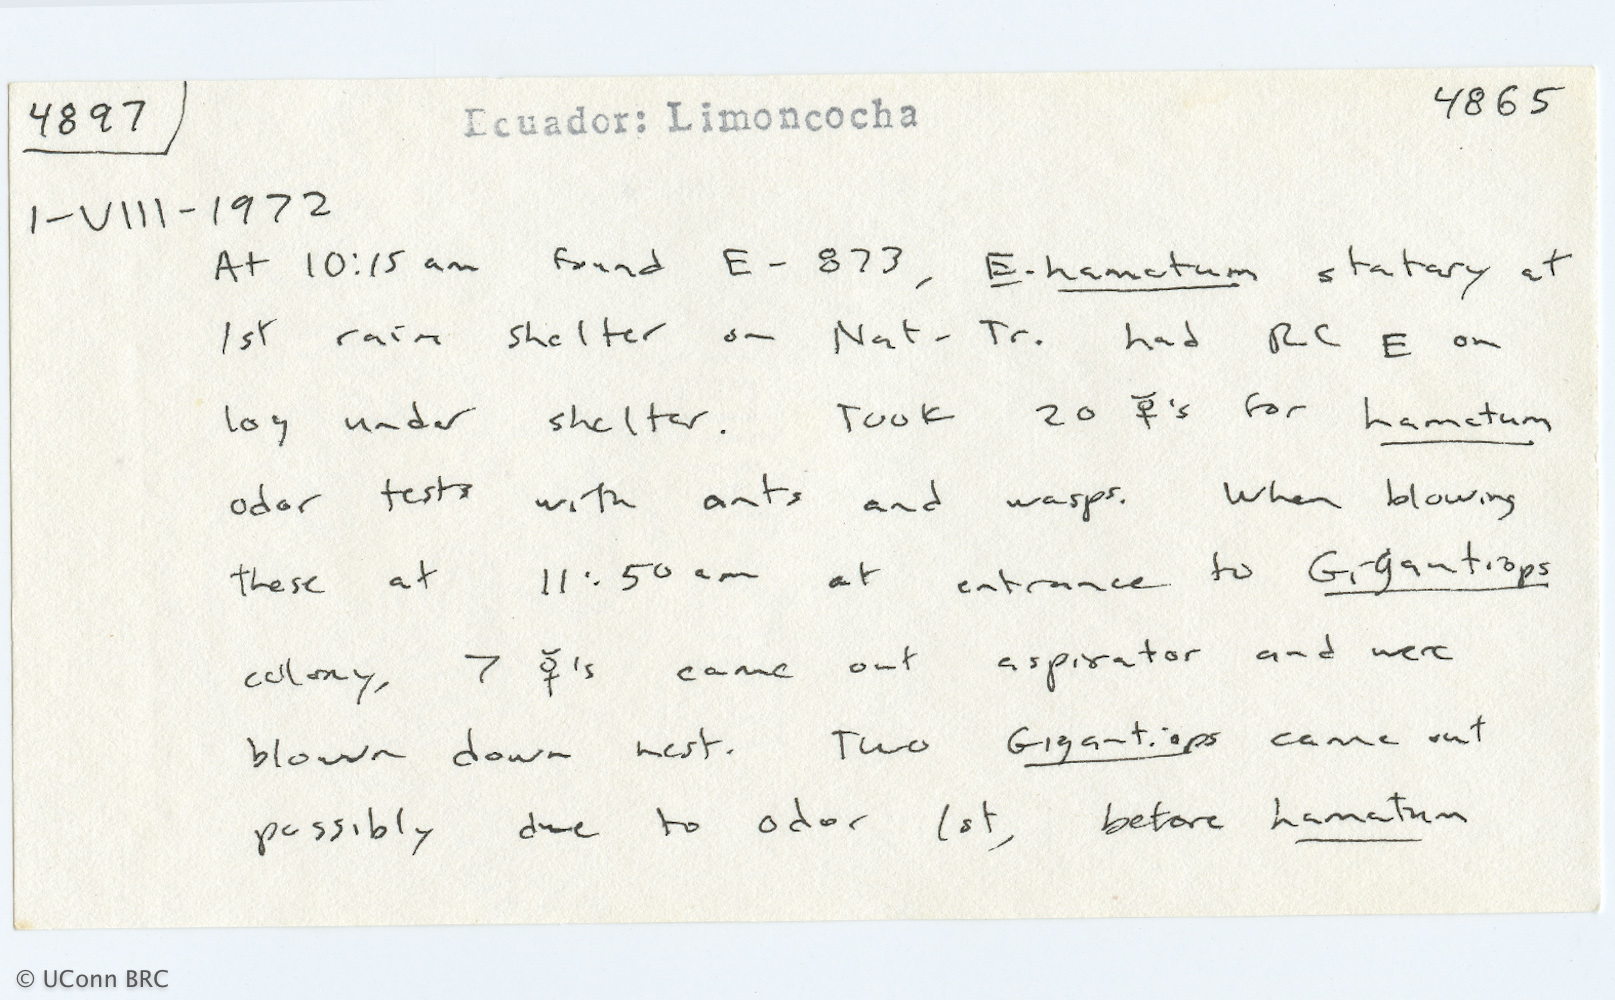 4897 Ecuador: Limoncocha 4865
1-VIII-1972
At 10:15 am found E-873, E. hamatum statary at
1st rain shelter on Nat. Tr. had RC E on
log under shelter. Took 20 ☿'s for hamatum
odor tests with ants and wasps. When blowing
these at 11:50 am at entrance to Gigantiops
colony, 7 ☿'s came out aspirator and were
blown down nest. Two Gigantiops came out
possibly due to odor 1st, before hamatum
© UConn BRC